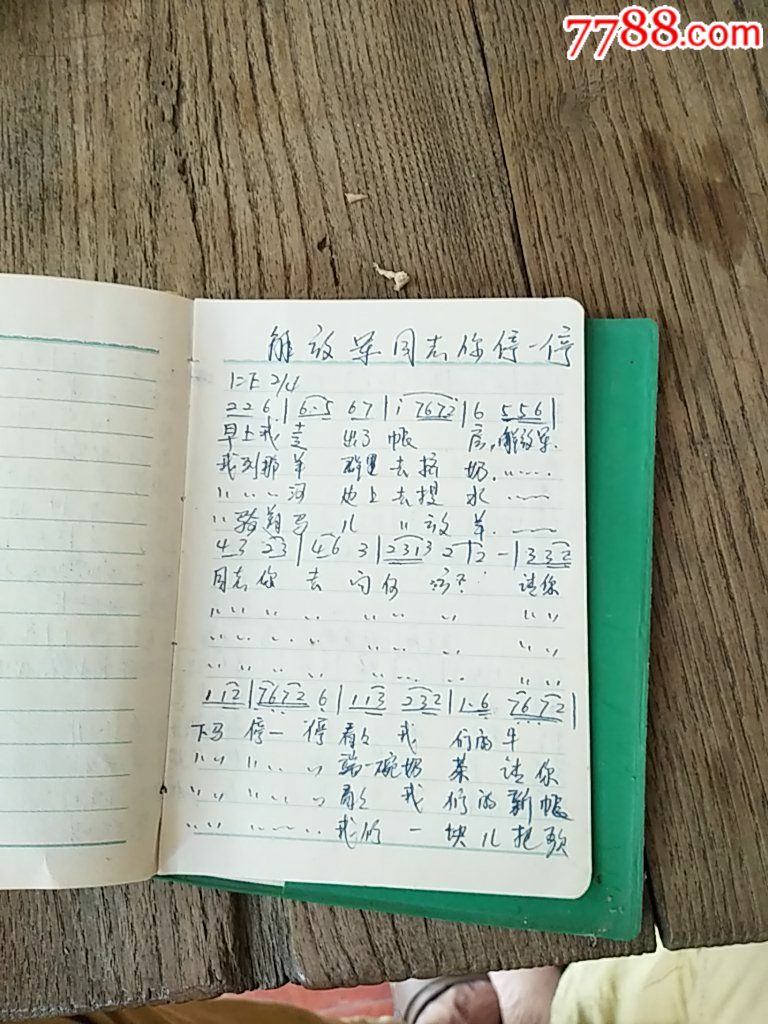 7788.com
解放军同志你停一停
1=F 2/4
2 2 6 | 6·5 6 7 | i 7672 | 6 5 5 6 |
早上我走 出了帐 房,解放军.
我到那羊 群里去挤 奶. 〃……
〃 〃 〃 河 边上去提 水 ……
〃 骑着马 儿 〃 放 羊. ……
4 3 2 3 | 4 6 3 | 2 3 1 3 2 | 2 - | 3 3 2
同志你 去 向何 方? 请你
〃 〃 〃 〃 〃 〃 〃 〃 〃
〃 〃 〃 〃 〃 〃 〃 〃 〃
〃 〃 〃 〃 〃 … 〃 〃 〃
1 1 2 | 7 6 7 2 6 | 1 1 3 2 3 2 | 1·6 7 6 7 2 |
下马 停一停 看看 我 们的牛
〃 〃 〃 〃 〃 端一碗奶 茶 请你
〃 〃 〃 〃 〃 看看 我 们的新帐
〃 〃 〃 〃 〃 我们 一 块儿把歌